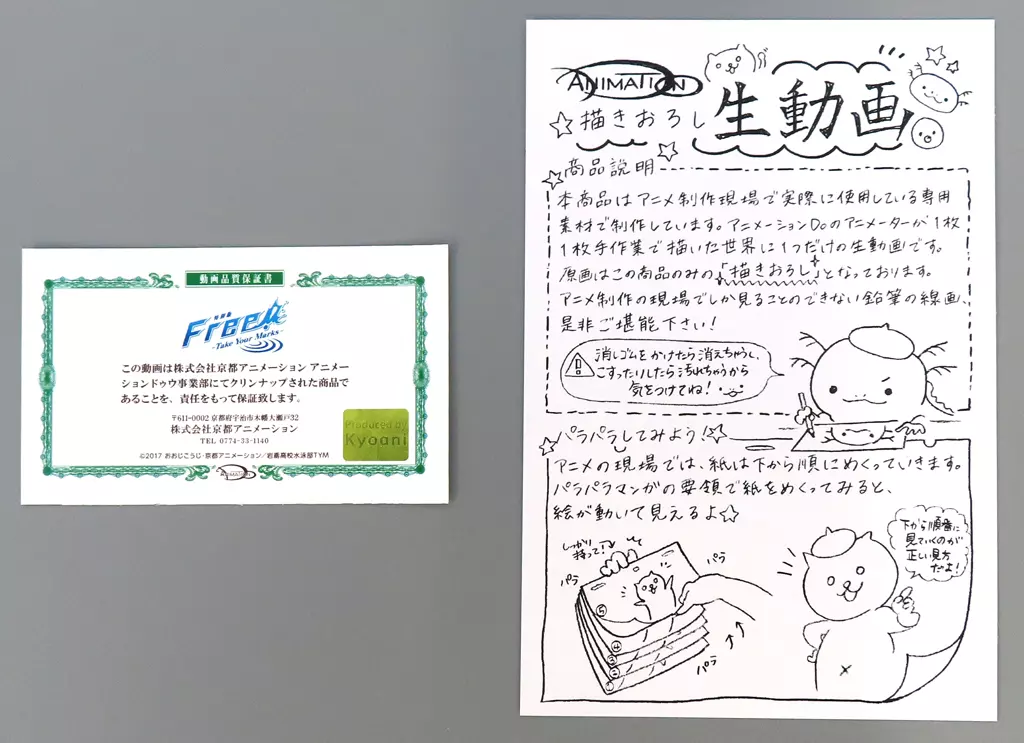 動画品質保証書
特別版
Free!
-Take Your Marks-
この動画は株式会社京都アニメーション アニメー
ションドゥウ事業部にてクリンナップされた商品で
あることを、責任をもって保証致します。
〒611-0002 京都府宇治市木幡大瀬戸32
株式会社京都アニメーション
TEL 0774-33-1140
Produced by
Kyoani
©2017 おおじこうじ・京都アニメーション/岩鳶高校水泳部TYM
ANIMATION
ANIMATION
☆描きおろし 生動画
☆商品説明☆
本商品はアニメ制作現場で実際に使用している専用
素材で制作しています。アニメーションDoのアニメーターが1枚
1枚手作業で描いた世界に1つだけの生動画です。
原画はこの商品のみの「描きおろし」となっております。
アニメ制作の現場でしか見ることのできない鉛筆の線画、
是非ご堪能下さい!
消しゴムをかけたら消えちゃうし、
こすったりしたら汚れちゃうから
気をつけてね!
☆パラパラしてみよう!☆
アニメの現場では、紙は下から順にめくっていきます。
パラパラマンガの要領で紙をめくってみると、
絵が動いて見えるよ☆
しっかり
持って!
パラ
パラ
パラ
⑤
④
③
②
①
下から順番に
見ていくのが
正しい見方
だよ!